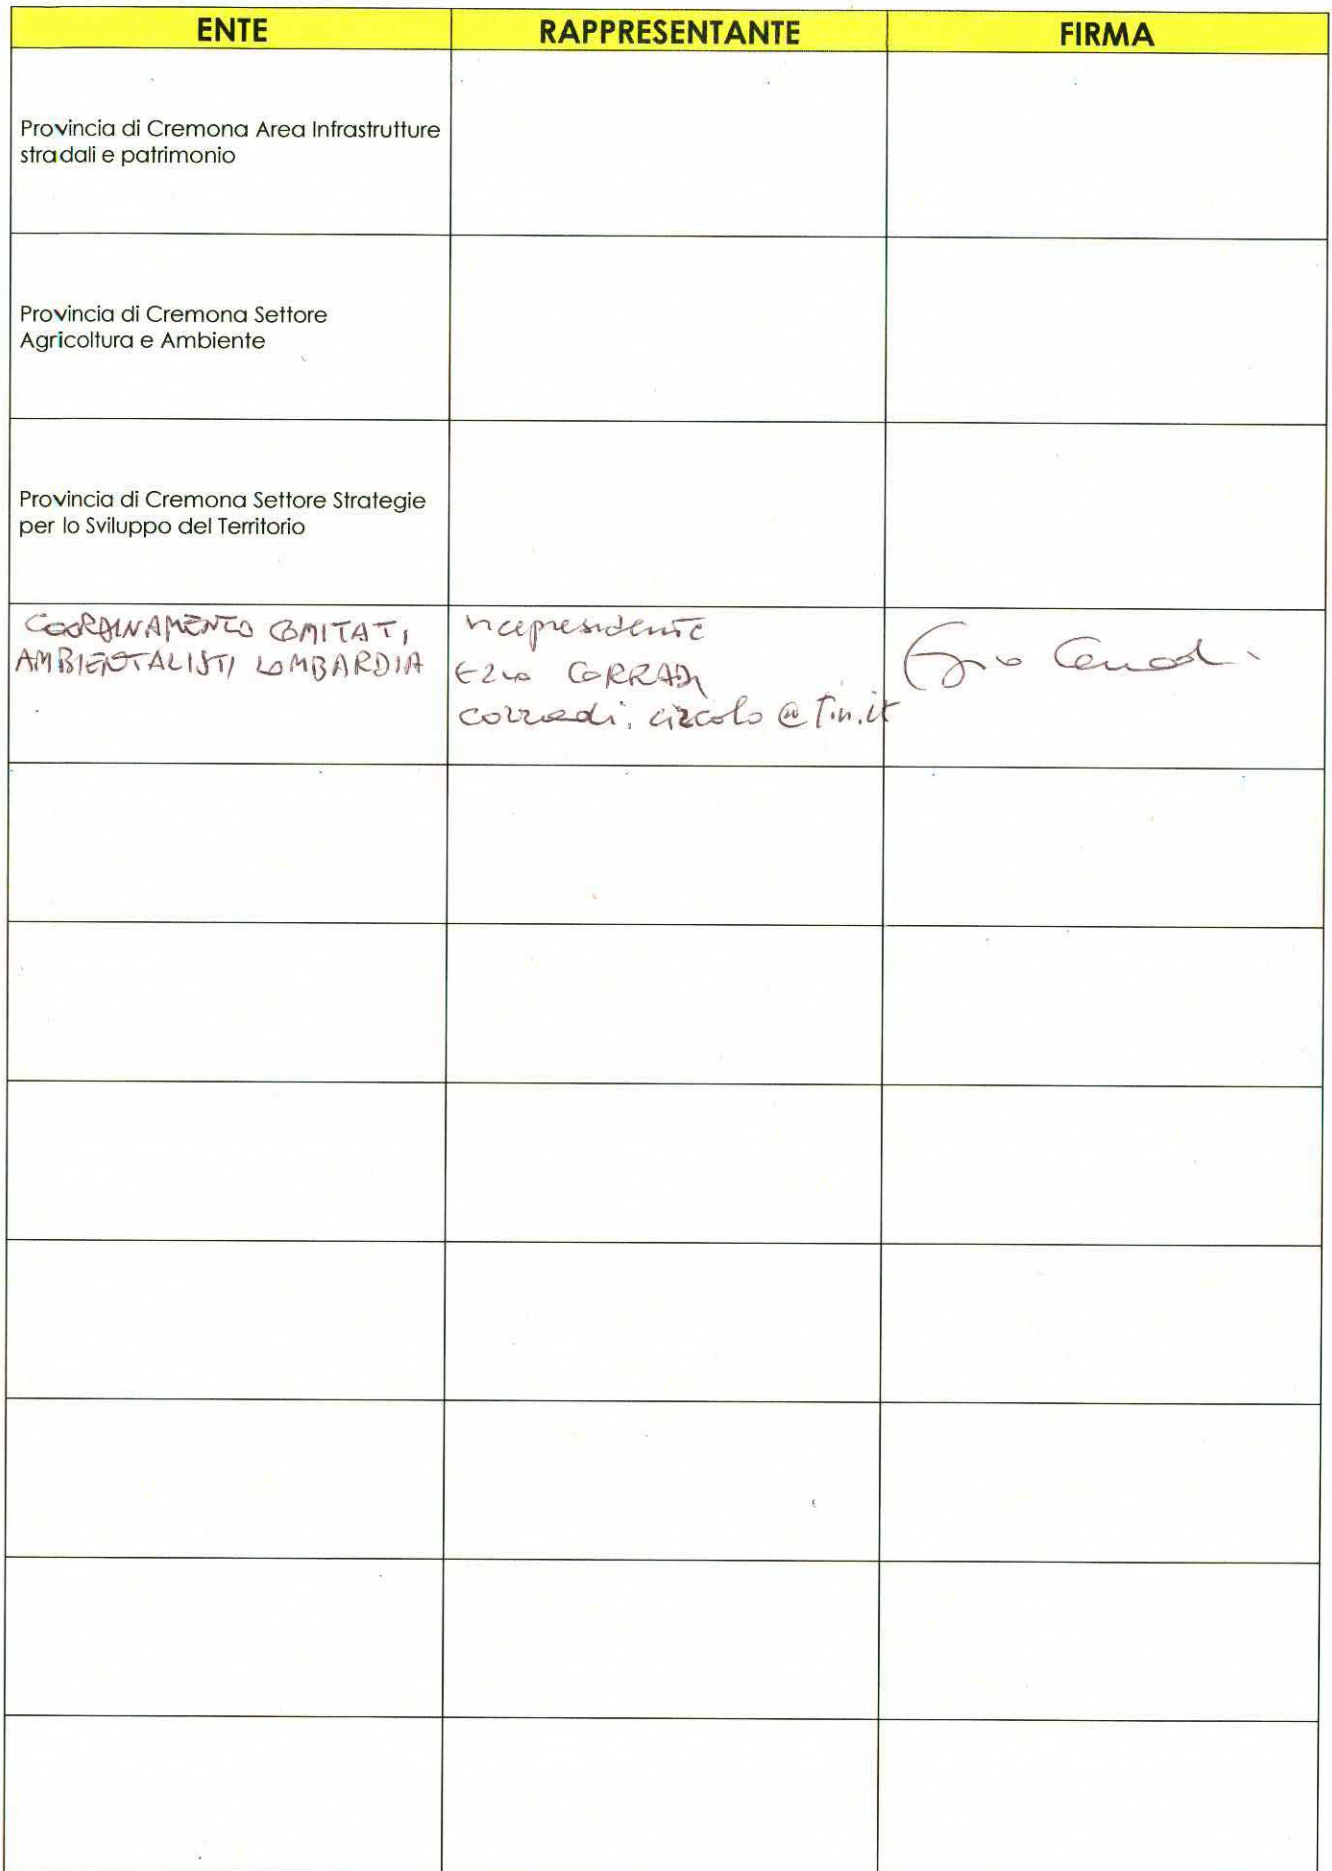 ENTE RAPPRESENTANTE FIRMA
Provincia di Cremona Area Infrastrutture
stradali e patrimonio
Provincia di Cremona Settore
Agricoltura e Ambiente
Provincia di Cremona Settore Strategie
per lo Sviluppo del Territorio
COORDINAMENTO COMITATI
AMBIENTALISTI LOMBARDIA
vicepresidente
Ezio CORRADI
corradi.circolo@tin.it
Ezio Corradi